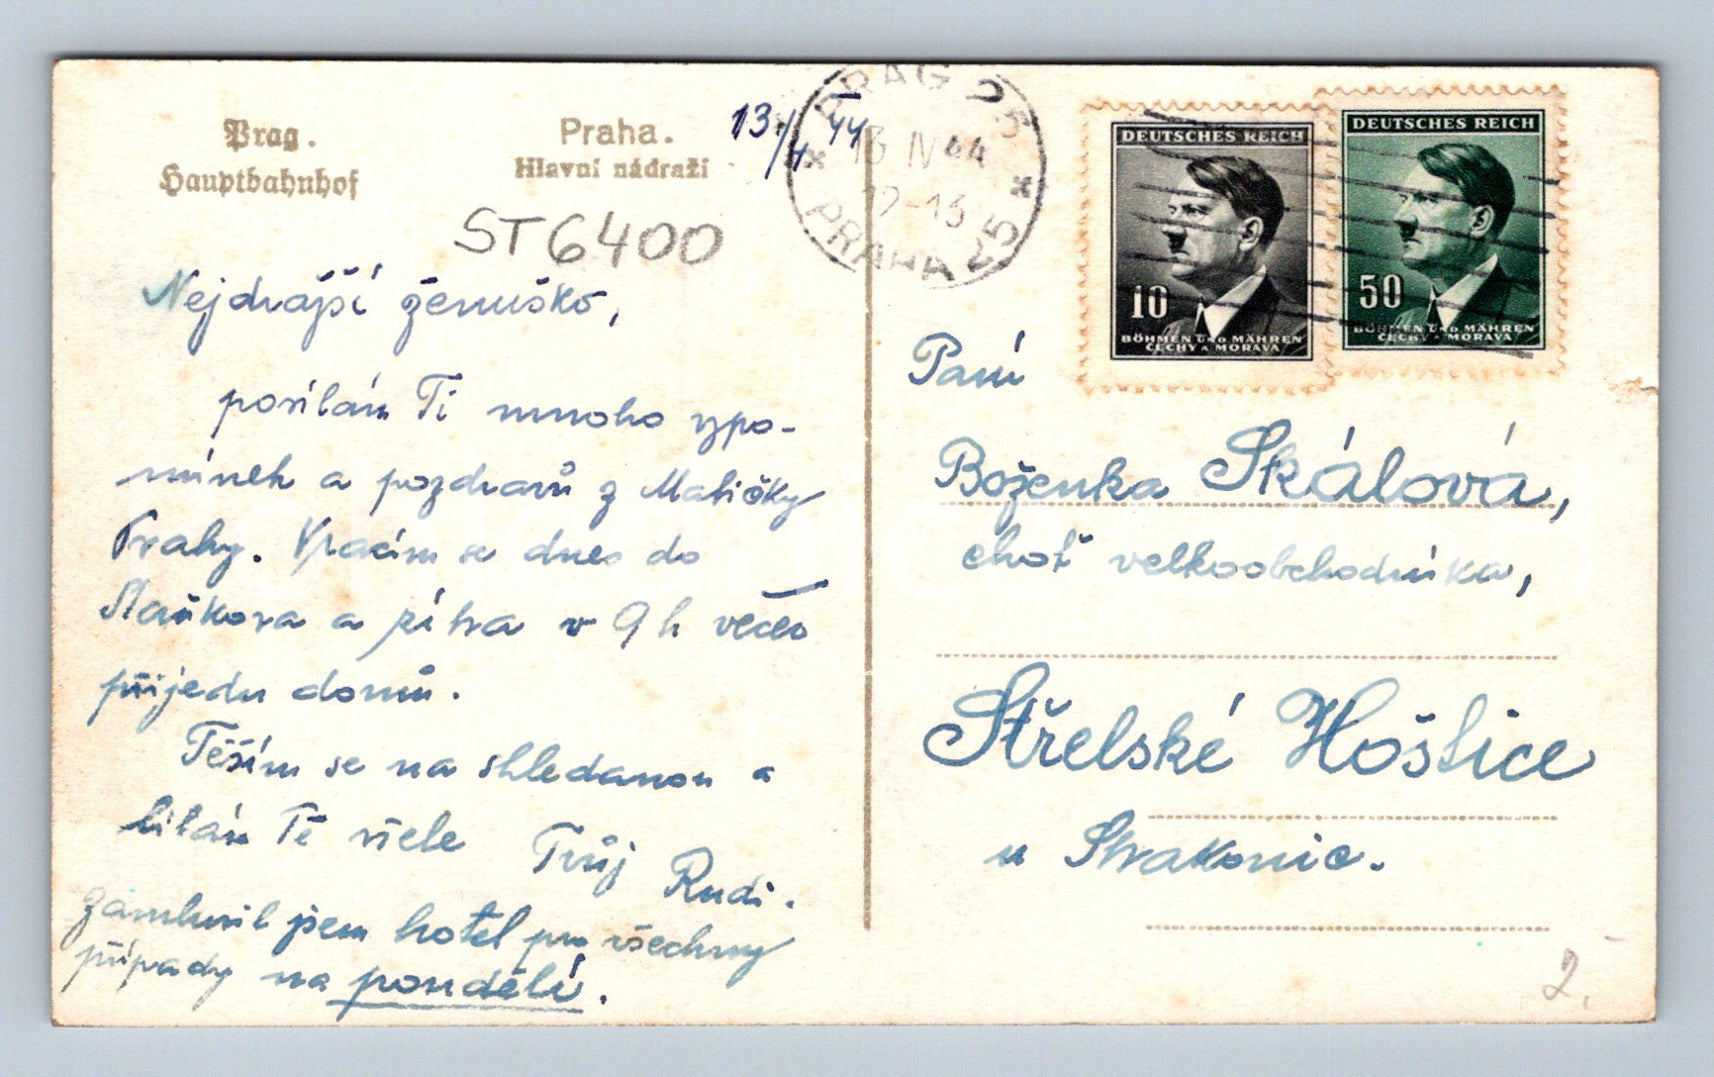 Prag.
Hauptbahnhof
Praha.
Hlavní nádraží
13/4 44
ST6400
PRAG 25
13 IV 44
12-13
PRAHA 25
DEUTSCHES REICH
10
BÖHMEN UND MÄHREN
ČECHY A MORAVA
DEUTSCHES REICH
50
BÖHMEN UND MÄHREN
ČECHY A MORAVA
Nejdražší ženuško,
posílám Ti mnoho vzpo-
mínek a pozdravů z Matičky
Prahy. Vracím se dnes do
Staňkova a zítra v 9 h večer
přijedu domů.
Těším se na shledanou a
líbám Tě vřele
Tvůj Rudi.
Zamluvil jsem hotel pro všechny
případy na pondělí.
Paní
Boženka Skálová,
choť velkoobchodníka,
Střelské Hoštice
u Strakonic.
2.